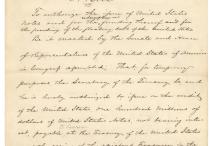 To authorize the issue of United States
notes and for the funding thereof and for
the funding of the floating debt of the United States
Be it enacted by the Senate and House
of Representatives of the United States of America
in Congress assembled, That for temporary
purposes the Secretary of the Treasury be and
is hereby authorized to issue on the credit
of the United States One hundred Millions of
dollars of United States notes, not bearing inter-
est, payable at the Treasury of the United States